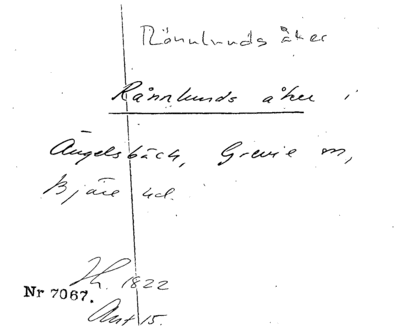 Rönnlunds åker
Rånnlunds åker i
Ängelsbäck, Grevie sn,
Bjäre hd.
Lh. 1822
Nr 7067.
Ant 15.